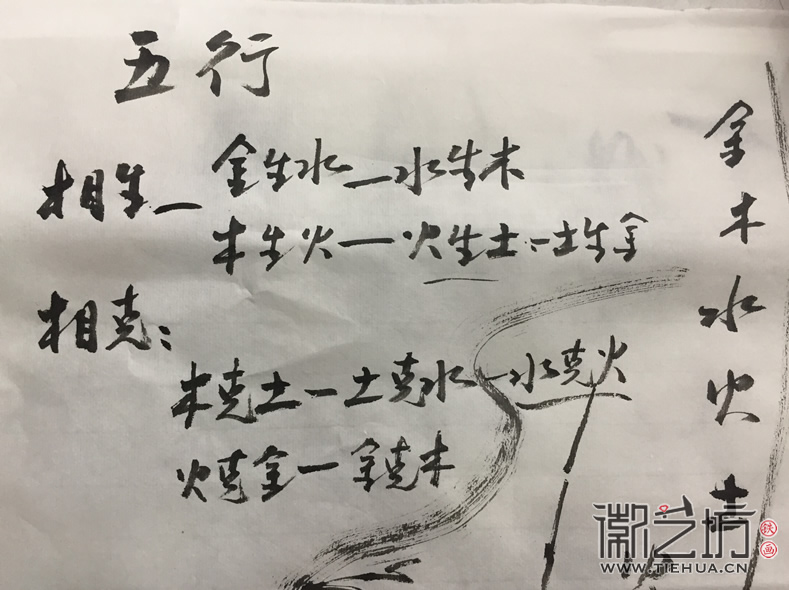 五行
相生—
金生水—水生木
木生火—火生土：土生金
相克：
木克土—土克水—水克火
火克金—金克木
金木水火土
徽之坊
铁画
WWW.TIEHUA.CN